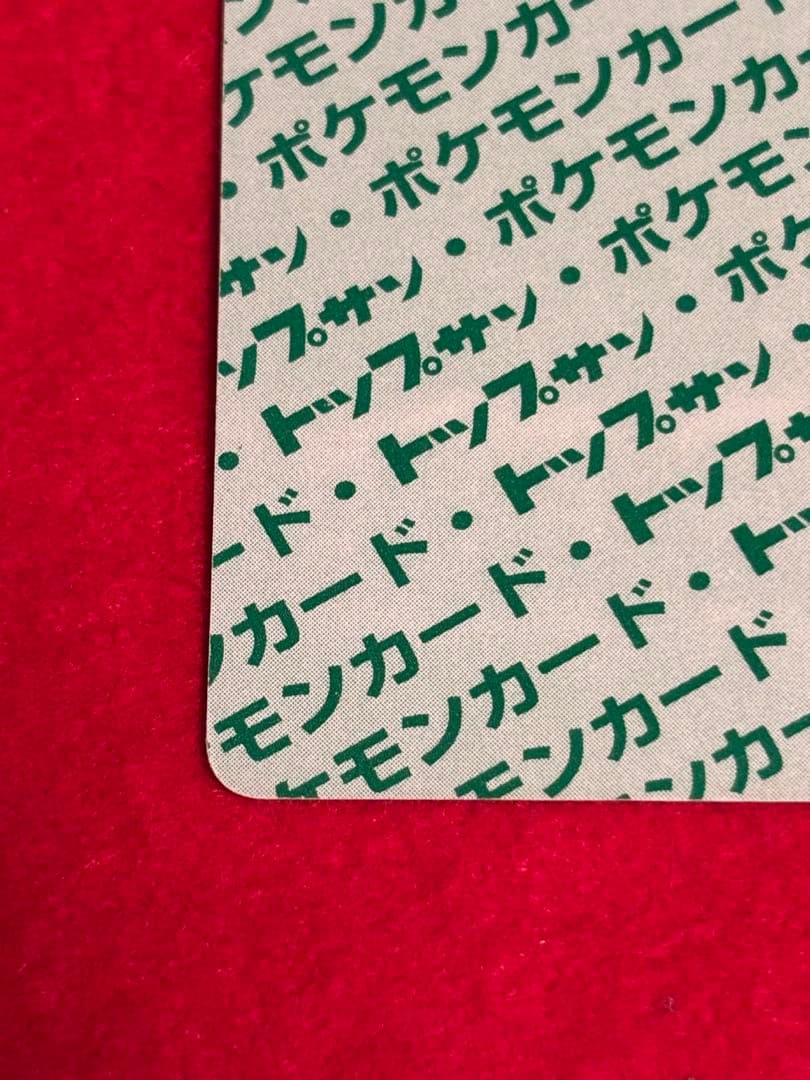 ン
ケモンカ
・ポケモンカー
サン・ポケモンカード
ップサン・ポケモンカー
・トップサン・ポケモン
ード・トップサン・ポケ
ンカード・トップサン・
モンカード・トップサ
ケモンカード・トッ
モンカード
ンカー